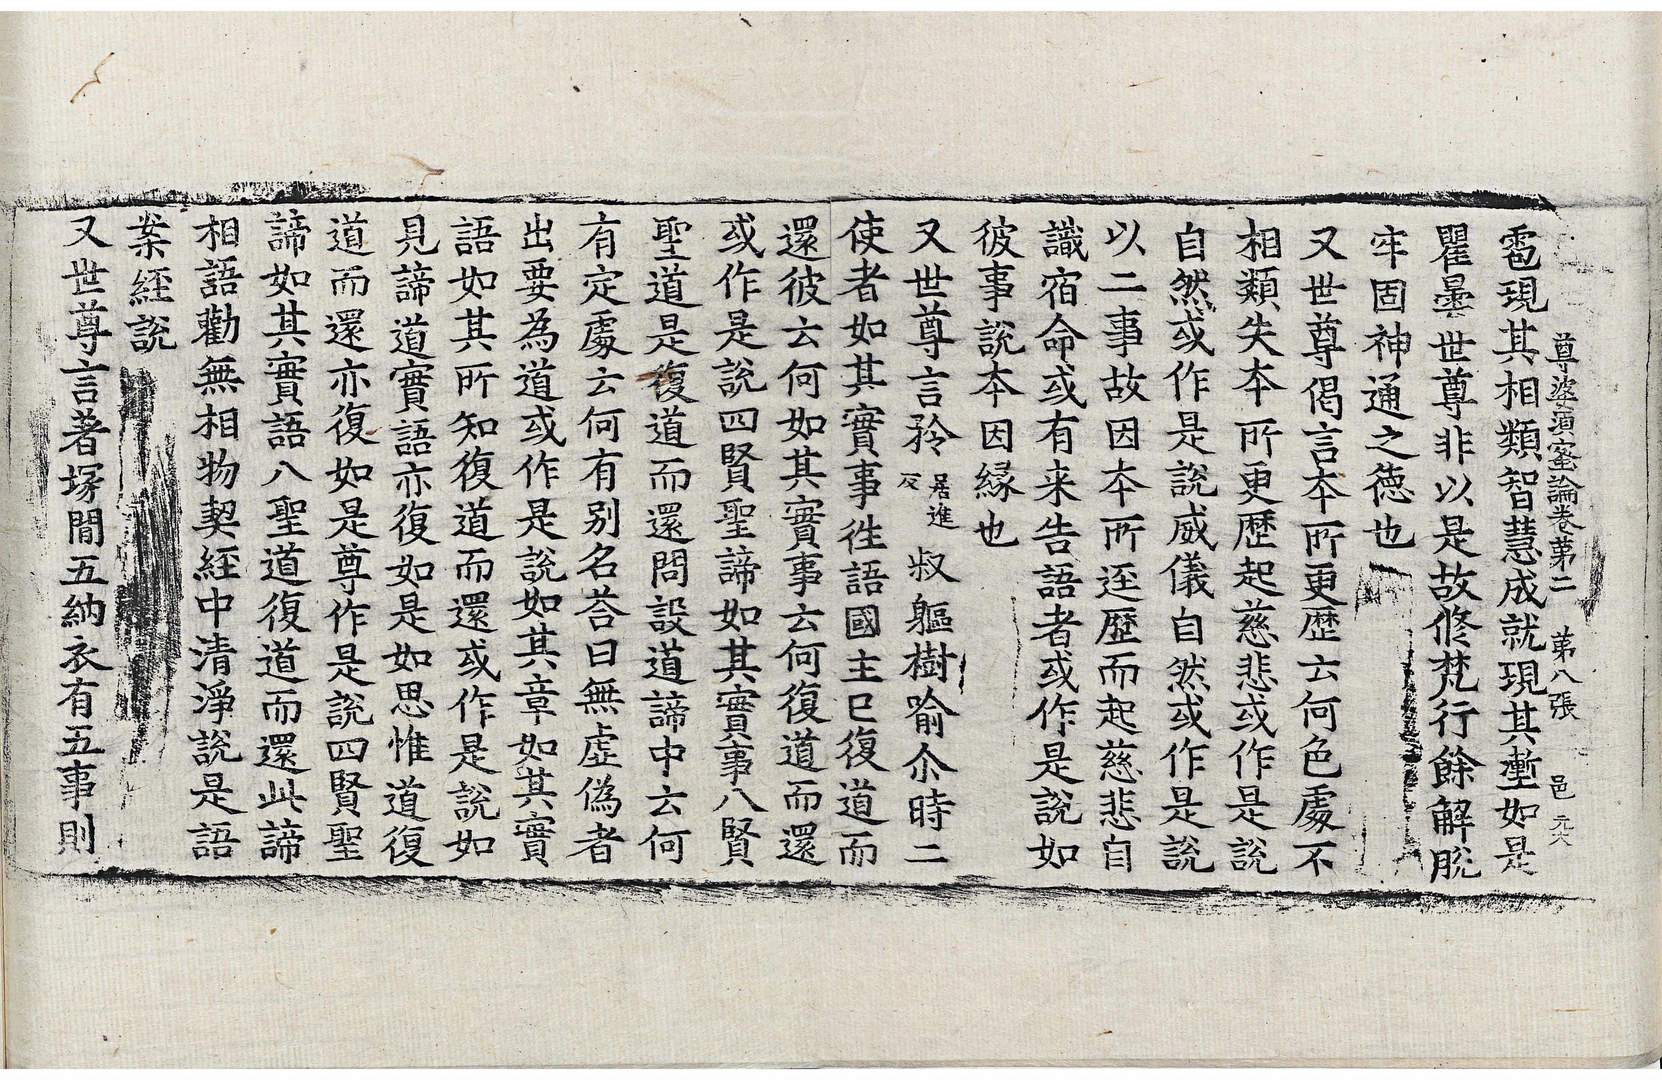 尊婆湏蜜論卷第二　第八張　邑
雹現其相類智慧成就現其塹如是
瞿曇世尊非以是故修梵行餘解脫
牢固神通之德也
又世尊偈言本所更歷云何色處不
相類失本所更歷起慈悲或作是說
自然或作是說威儀自然或作是說
以二事故因本所逕歷而起慈悲自
識宿命或有来告語者或作是說如
彼事說本因縁也
又世尊言矝居進反叔軀樹喻尒時二
使者如其實事徃語國主已復道而
還彼云何如其實事云何復道而還
或作是說四賢聖諦如其實事八賢
聖道是復道而還問設道諦中云何
有定處云何有别名荅曰無虛偽者
出要為道或作是說如其章如其實
語如其所知復道而還或作是說如
見諦道實語亦復如是如思惟道復
道而還亦復如是尊作是說四賢聖
諦如其實語八聖道復道而還此諦
相語勸無相物契経中清淨說是語
案経說
又世尊言著塚間五納衣有五事則